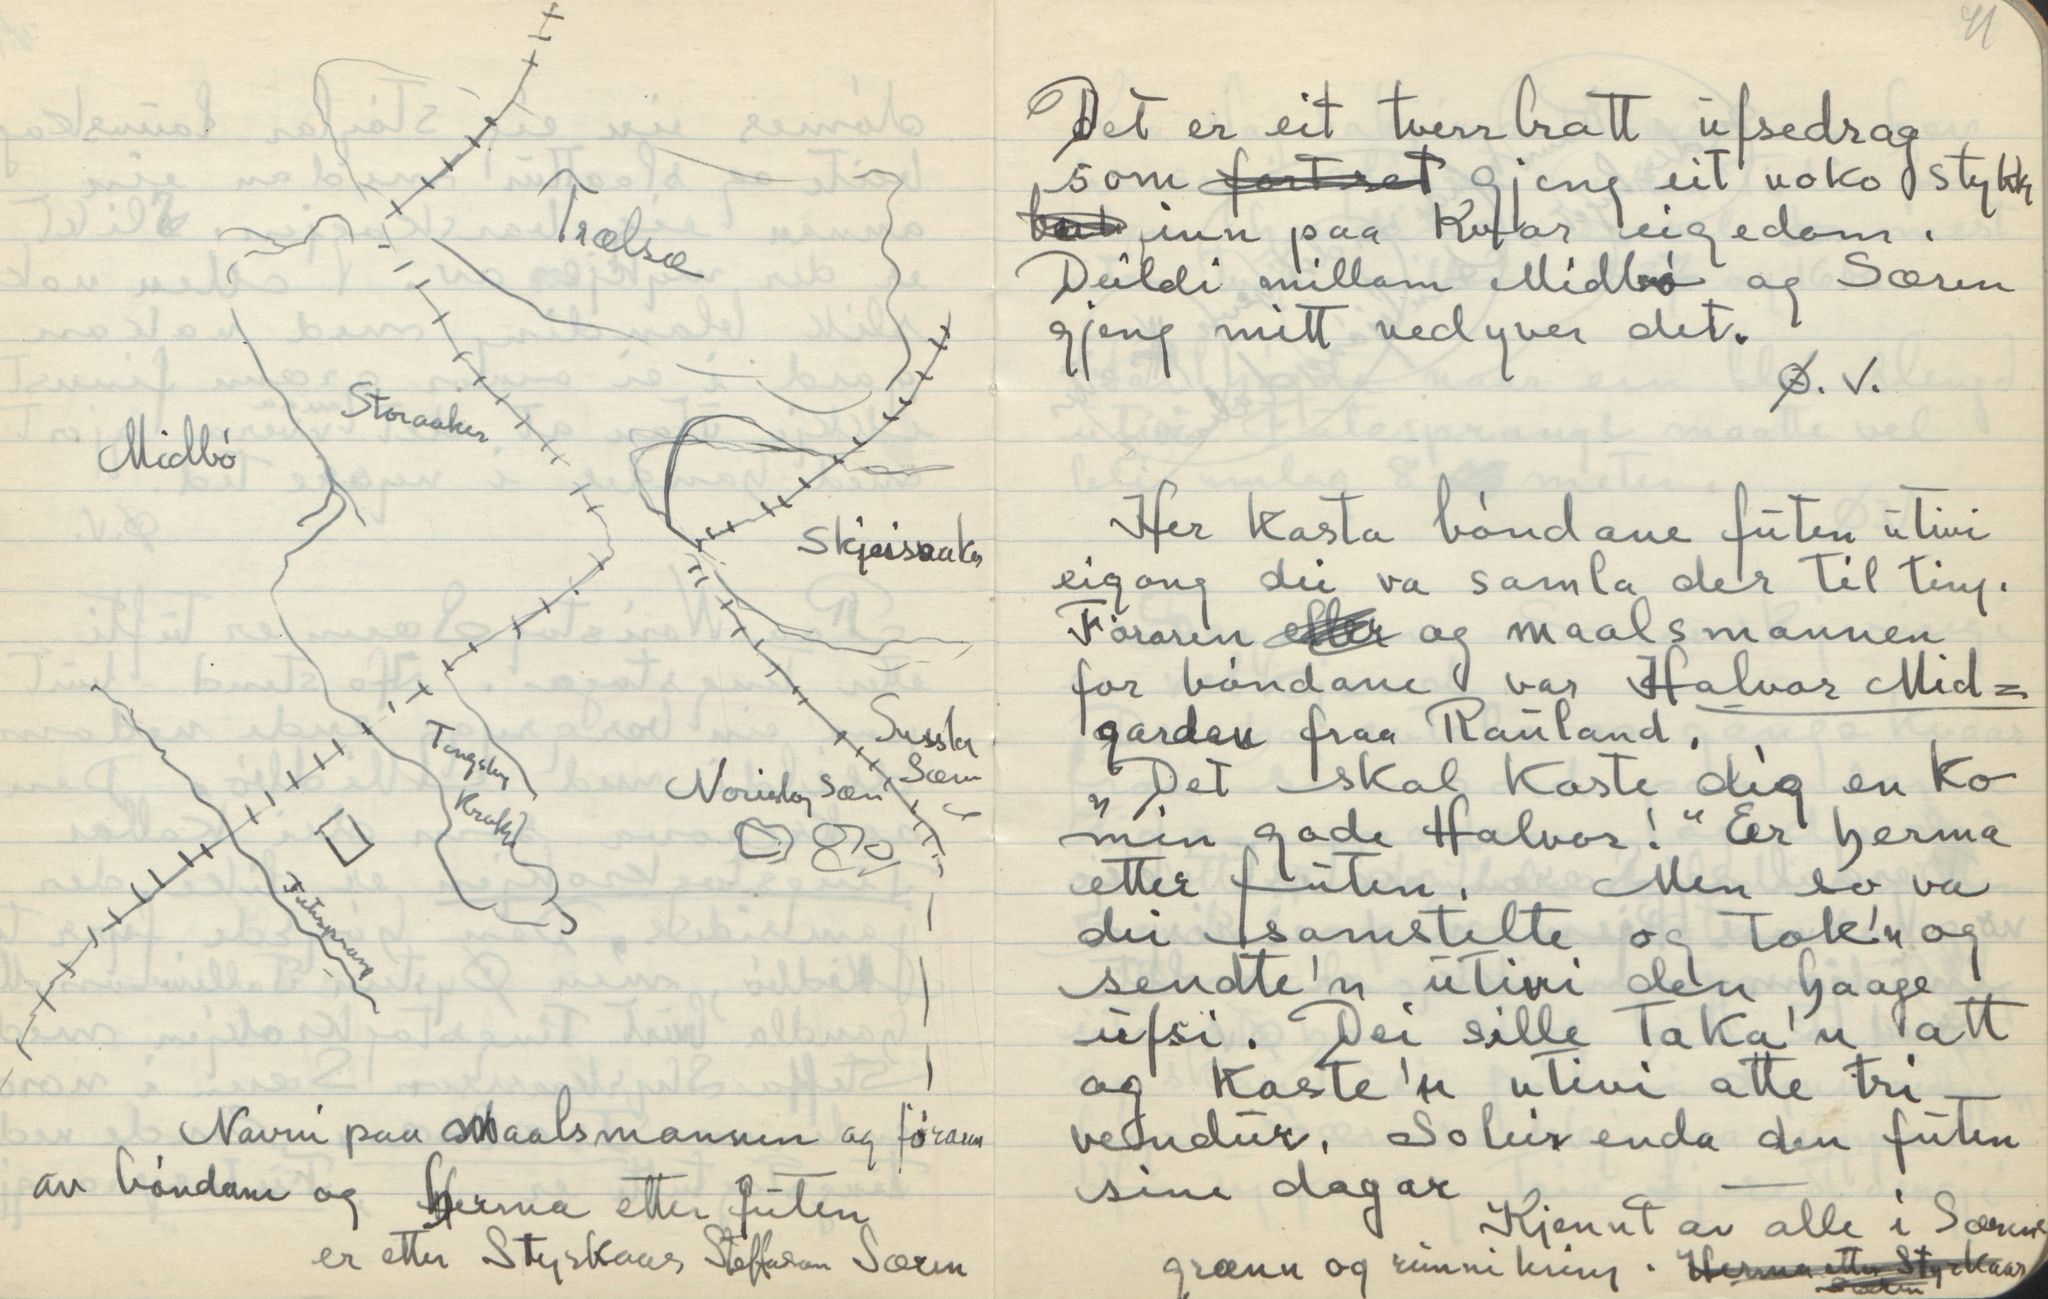 Trælsæ
Storaaker
Midbó
Skjeisaaker
Søren
Navni paa maalsmannen og fóraren
av bóndane og herma etter futen
er etter Styrkaar Steffason Særen
41
Det er eit tverrbratt ufsedrag
som fortset gjeng eit noko stykkje
bort inn paa Kvar eigedom.
Deildi millom Midbó og Særen
gjeng mitt nedyver det.
Ø. V.
Her kasta bóndane futen utivi
eigong dei va samla der til ting.
Fóraren og maalsmannen
for bóndane var Halvor Mid=
garden fraa Rauland.
„Det skal koste dig en ko
min gode Halvor!" Er herma
etter futen. Men so va
dei samstelte og tok'n og
sendte'n utivi den haage
ufsi. Dei sille taka'n att
og kaste'n utivi atte tri
vendur. Soleis enda den futen
sine dagar
Kjennt av alle i Særens
grænn og runni kring. Herma etter Styrkaar
Særen